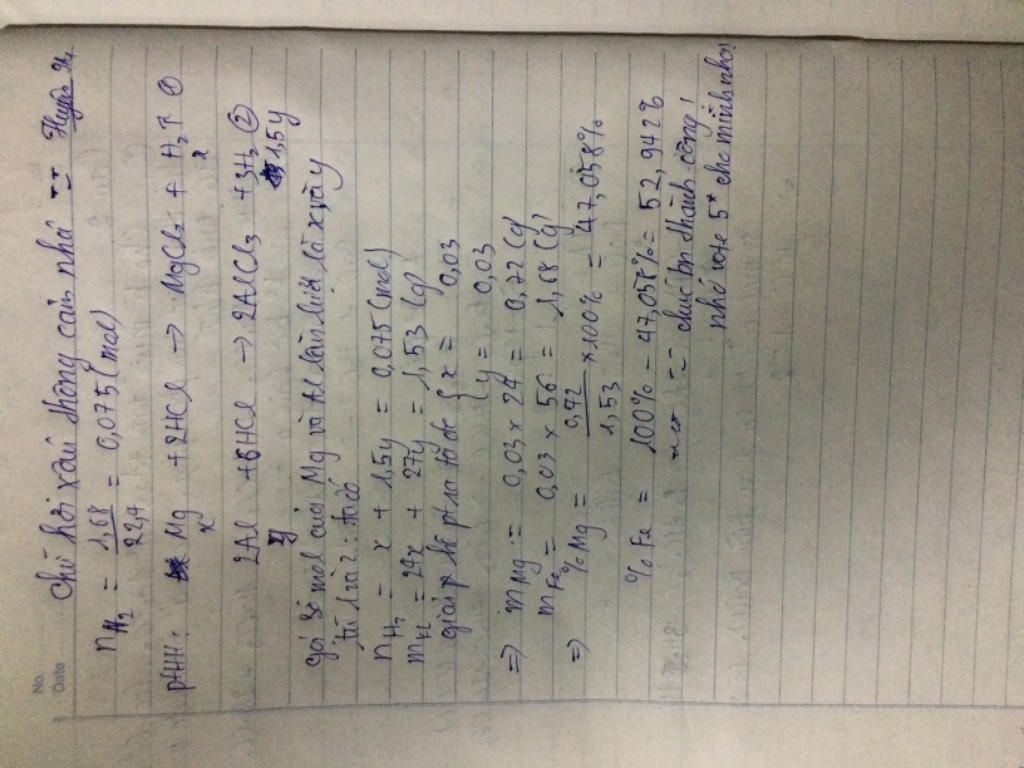 No.
Date
Chữ hơi xấu thông cảm nha
nH2 = 1,68/22,4 = 0,075 (mol)
PTHH: Mg + 2HCl → MgCl2 + H2↑ ①
x x
2Al + 6HCl → 2AlCl3 + 3H2 ②
y 1,5y
gọi số mol của Mg và Al lần lượt là x, y
từ 1 và 2: ta có
nH2 = x + 1,5y = 0,075 (mol)
mKL = 24x + 27y = 1,53 (g)
giải p hệ ptra ta đc { x = 0,03
y = 0,03
⇒ mMg = 0,03 × 24 = 0,72 (g)
mFe = 0,03 × 56 = 1,68 (g)
⇒ %Mg = 0,72/1,53 × 100% = 47,058%
%Fe = 100% - 47,058% = 52,942%
chúc bn thành công!
nhớ vote 5* cho mình nha!